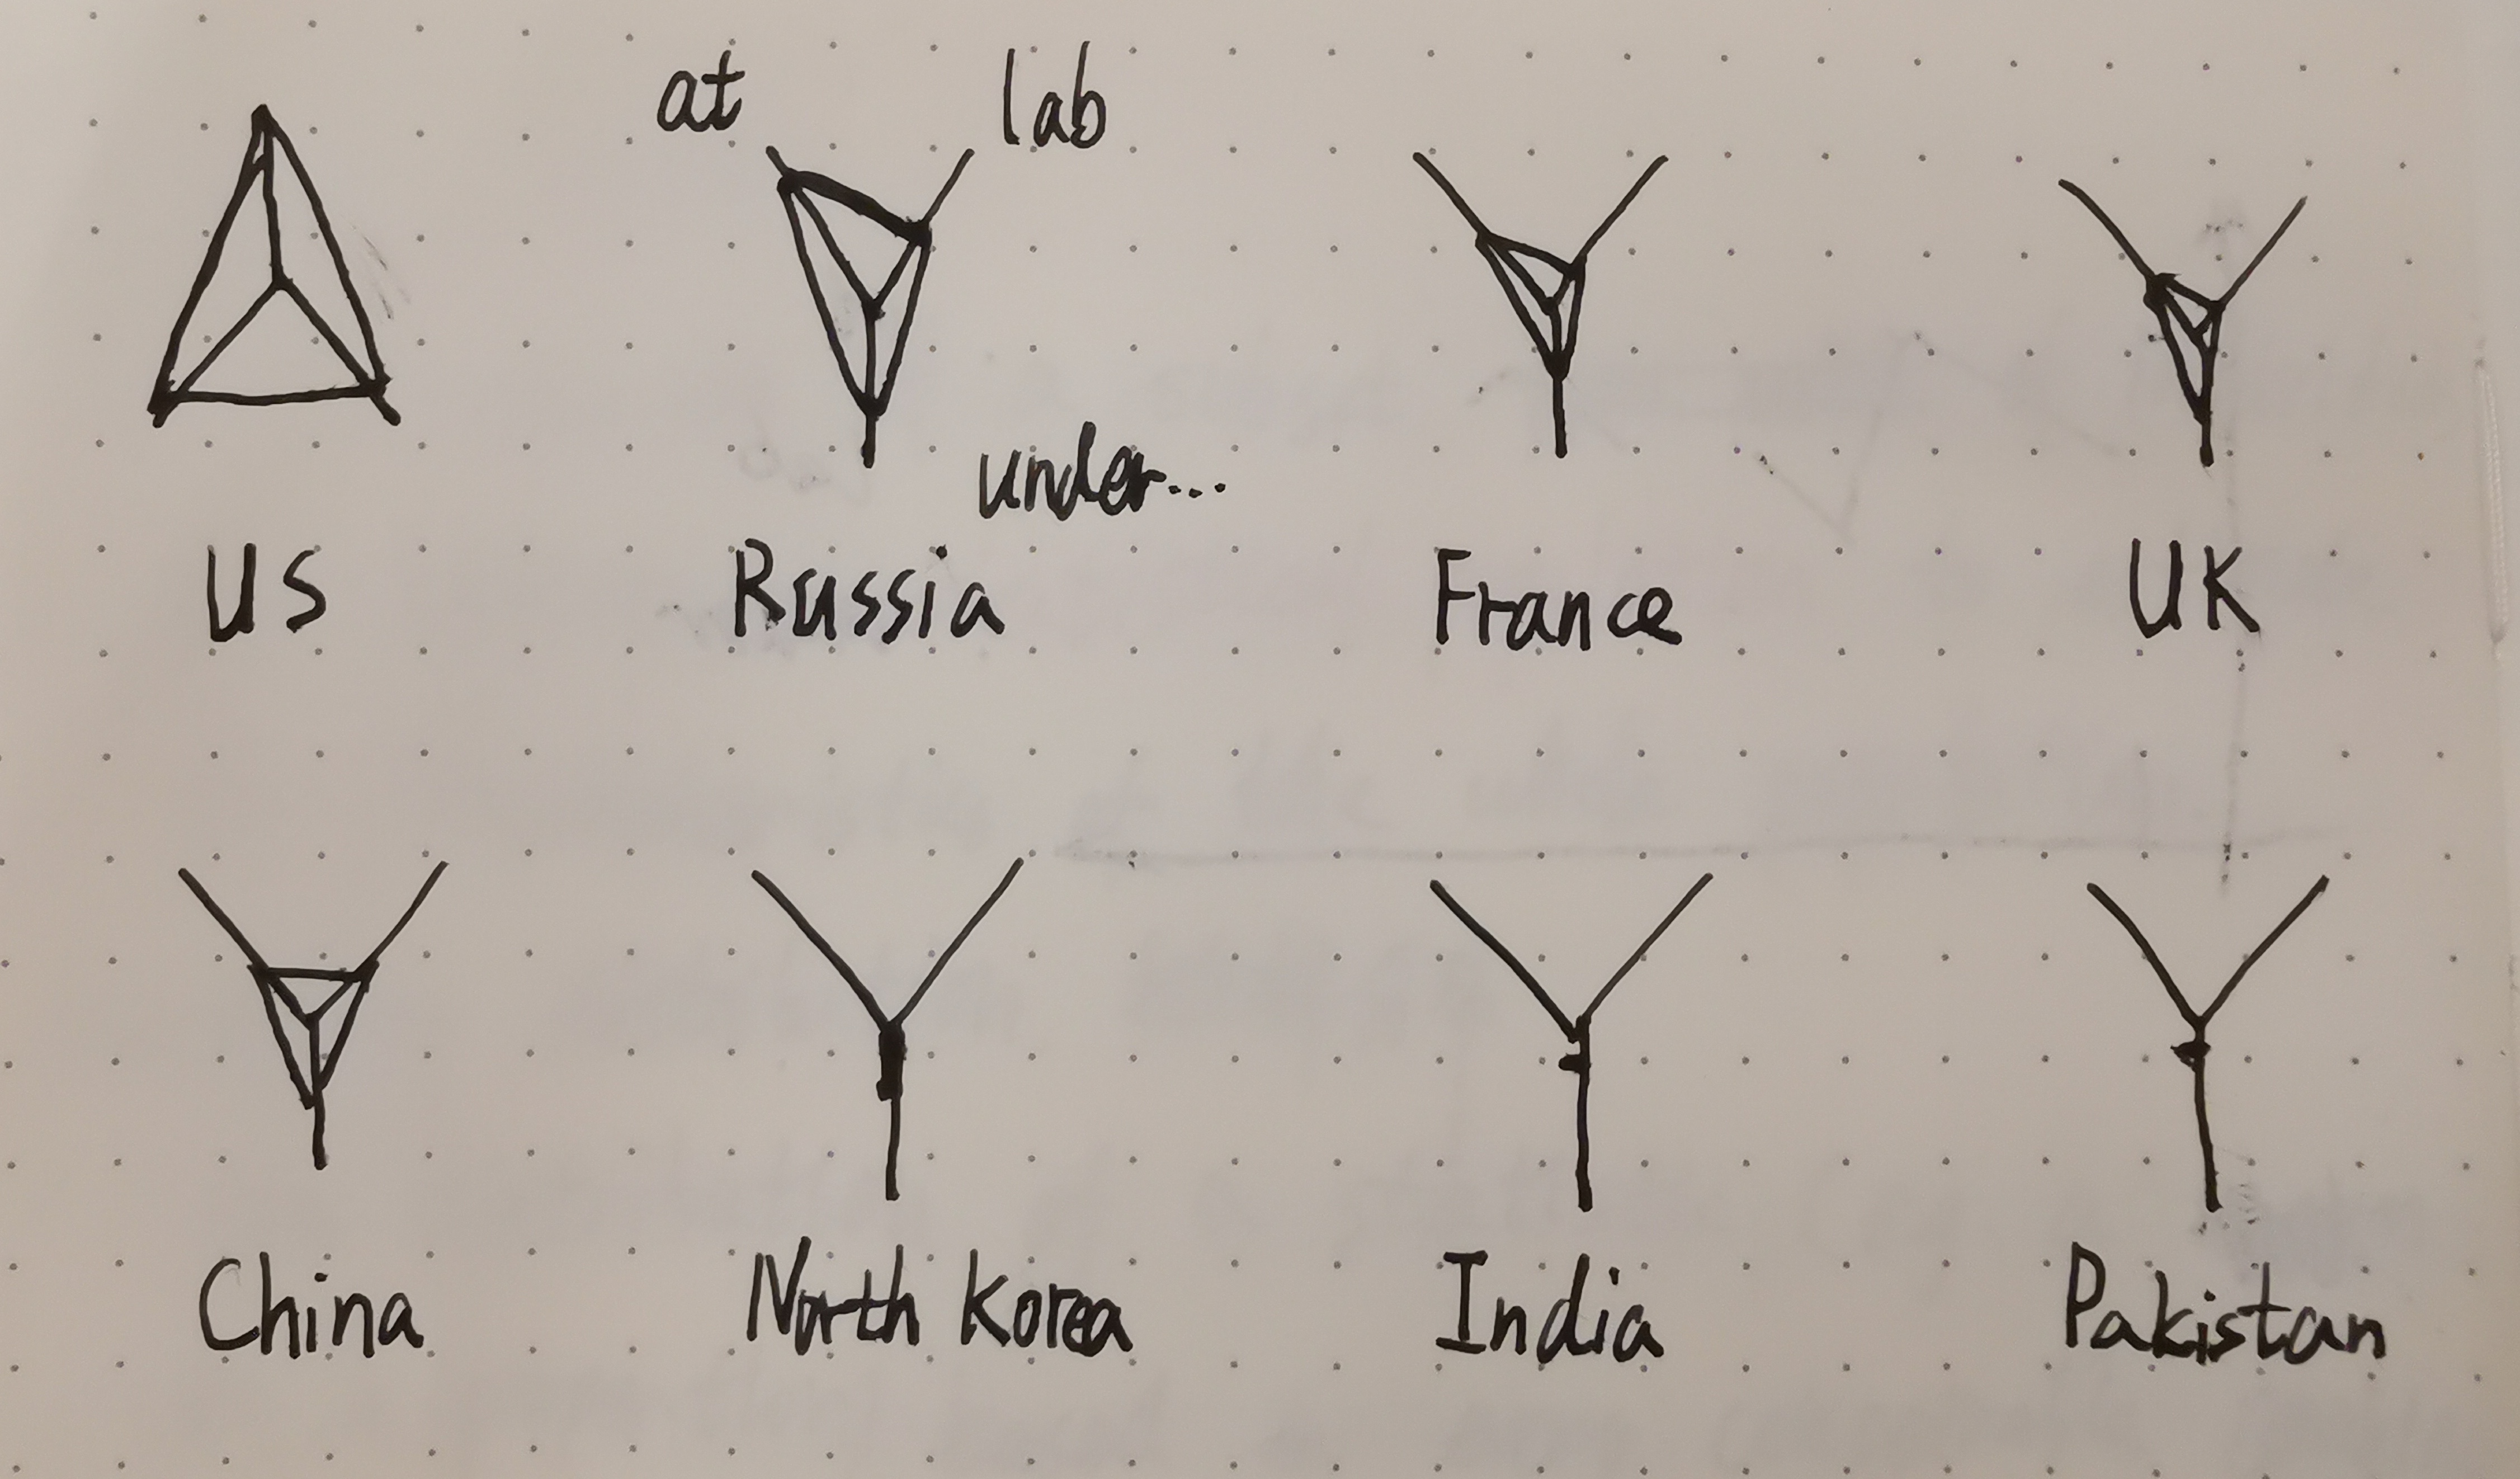 at lab
under...
US Russia France UK
China North Korea India Pakistan